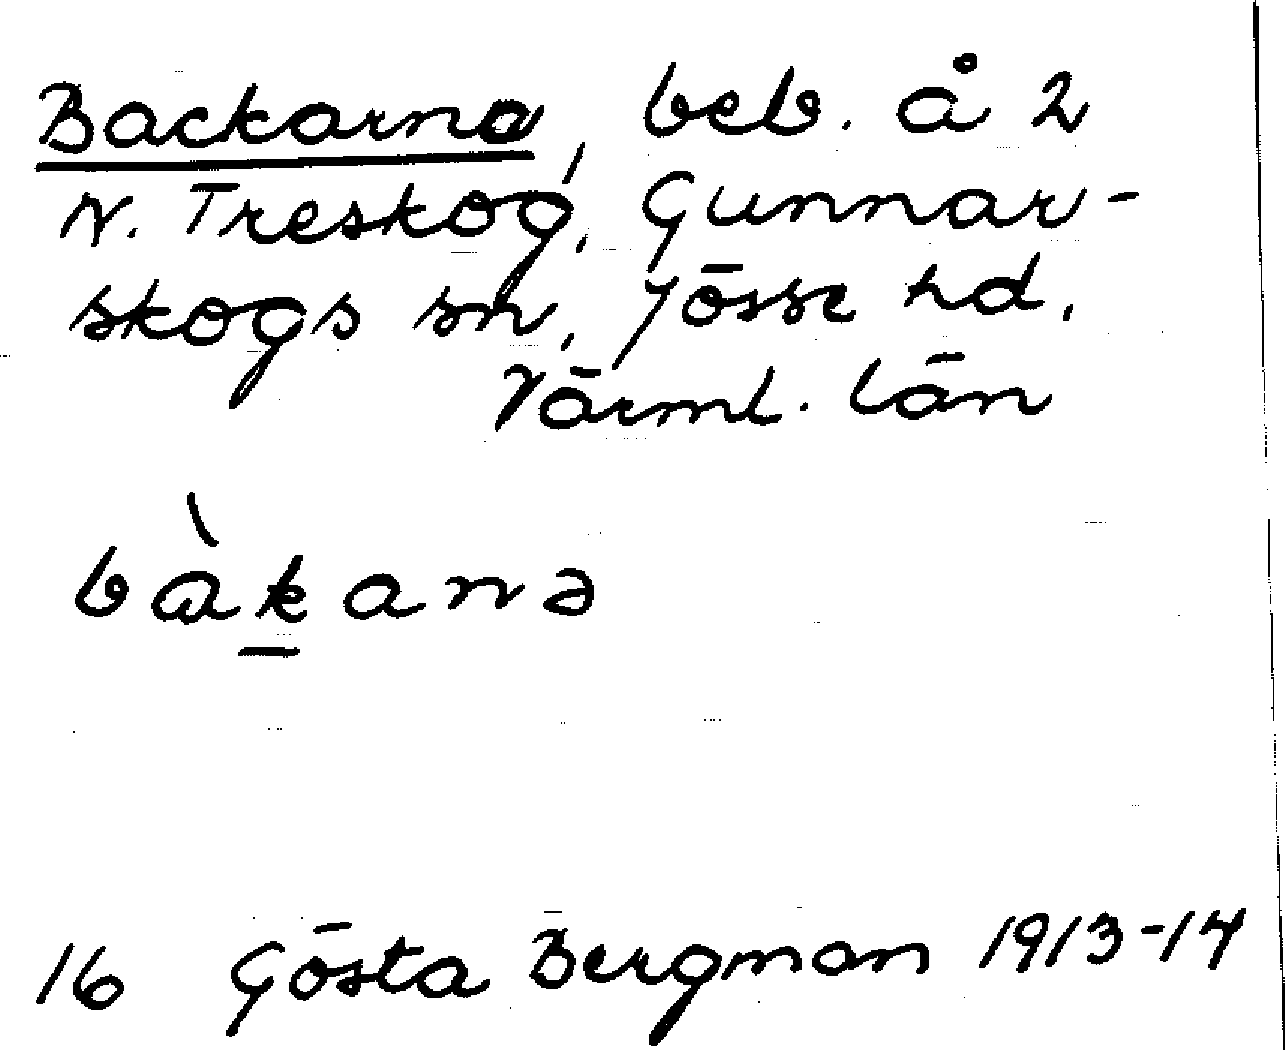 Backarna, beb. å 2
N. Treskog, Gunnar-
skogs sn, Jösse hd,
Värml. län
bàkanə
16 Gösta Bergman 1913-14